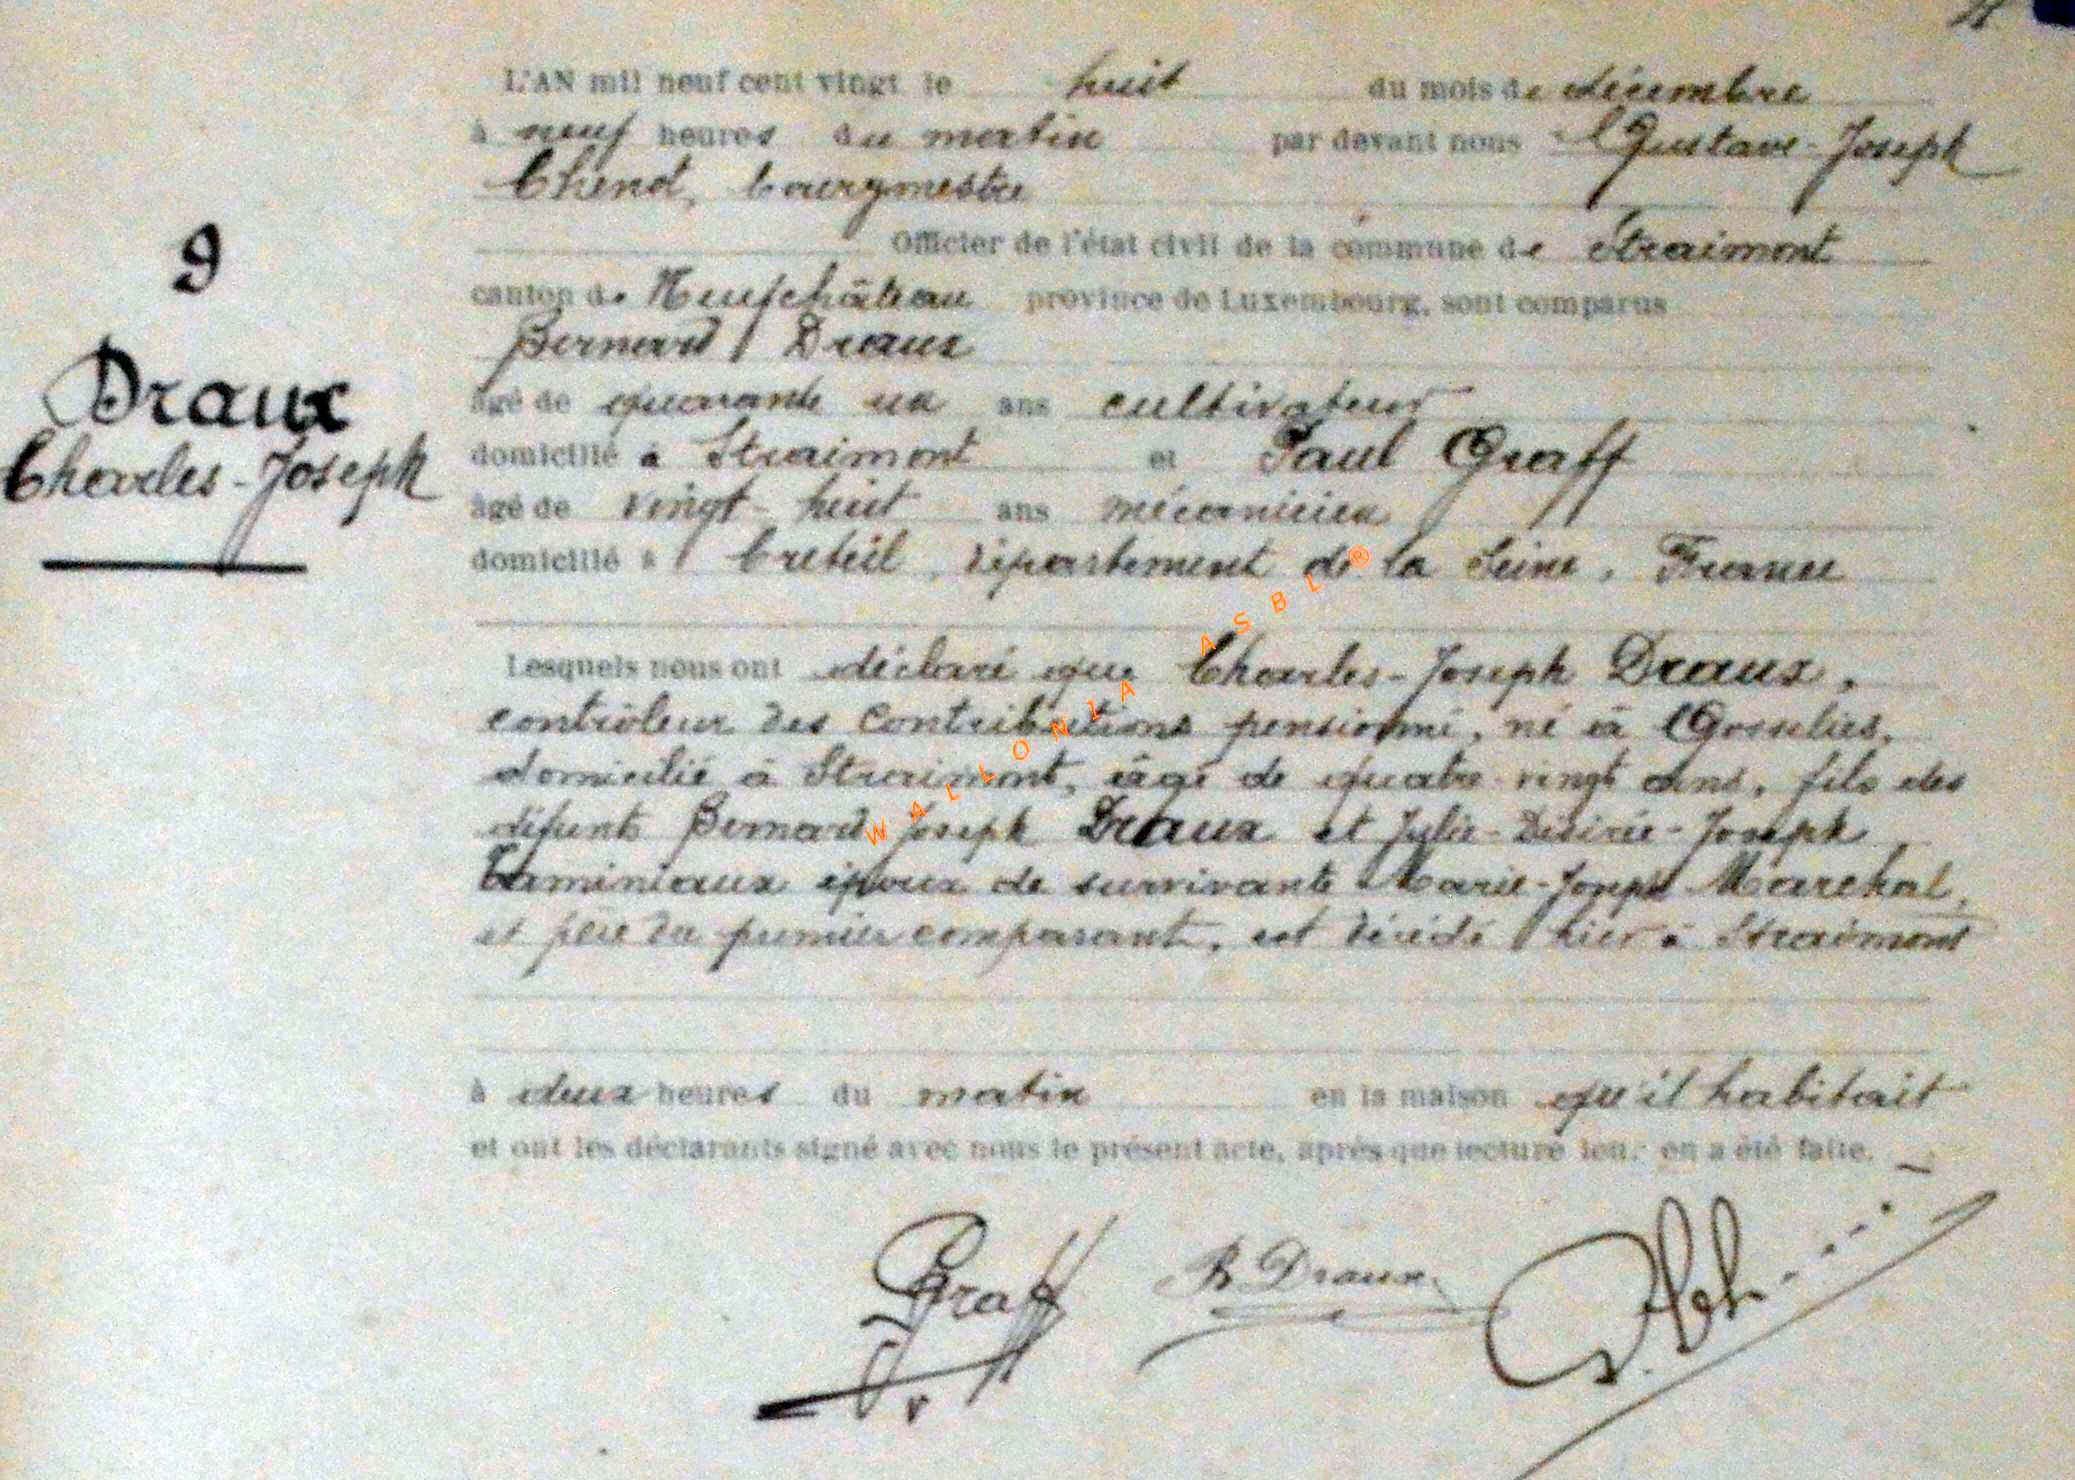 L'AN mil neuf cent vingt le huit du mois de décembre
à neuf heures du matin par devant nous Gustave-Joseph
Chenot, bourgmestre
Officier de l'état civil de la commune de Straimont
canton de Neufchâteau province de Luxembourg, sont comparus
Bernard Draux
âgé de quarante un ans cultivateur
domicilié à Straimont et Paul Graff
âgé de vingt-huit ans mécanicien
domicilié à Creteil, département de la Seine, France
9
Draux
Charles-Joseph
Lesquels nous ont déclaré que Charles-Joseph Draux,
contrôleur des contributions pensionné, né à Gosselies,
domicilié à Straimont, âgé de quatre-vingt ans, fils des
défunts Bernard Joseph Draux et Julie-Désirée-Joseph
époux de survivante Marie-Joseph Marechal,
et père du premier comparant, est décédé hier à Straimont
à deux heures du matin en la maison qu'il habitait
et ont les déclarants signé avec nous le présent acte, après que lecture leur en a été faite.
Graff B Draux
WALLONIA ASBL®